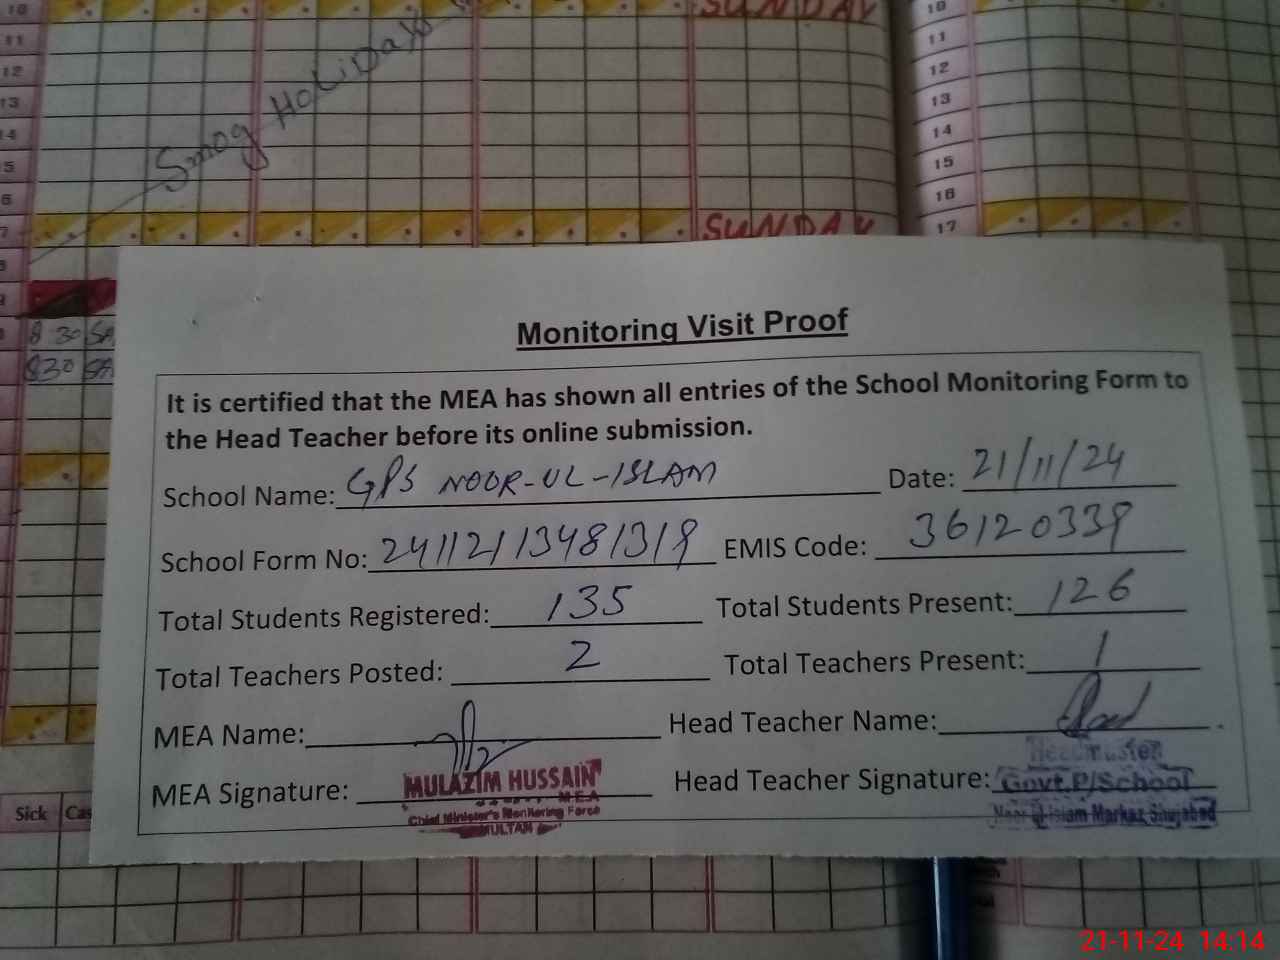 10
11
12
13
14
15
6
7
8
9
Smog HoLiDays
SUNDAY
SUNDAY
10
11
12
13
14
15
16
17
8 30 SA
830 SA
Monitoring Visit Proof
It is certified that the MEA has shown all entries of the School Monitoring Form to
the Head Teacher before its online submission.
School Name: GPS NOOR-UL-ISLAM Date: 21/11/24
School Form No: 241121134813 19 EMIS Code: 36120339
Total Students Registered: 135 Total Students Present: 126
Total Teachers Posted: 2 Total Teachers Present: 1
MEA Name: Head Teacher Name:
MEA Signature: MULAZIM HUSSAIN Head Teacher Signature:
M.E.A
Chief Minister's Monitoring Force
MULTAN
Headmaster
Govt.P/School
Noor ul Islam Markaz Shujabad
Sick Cas
21-11-24 14:14